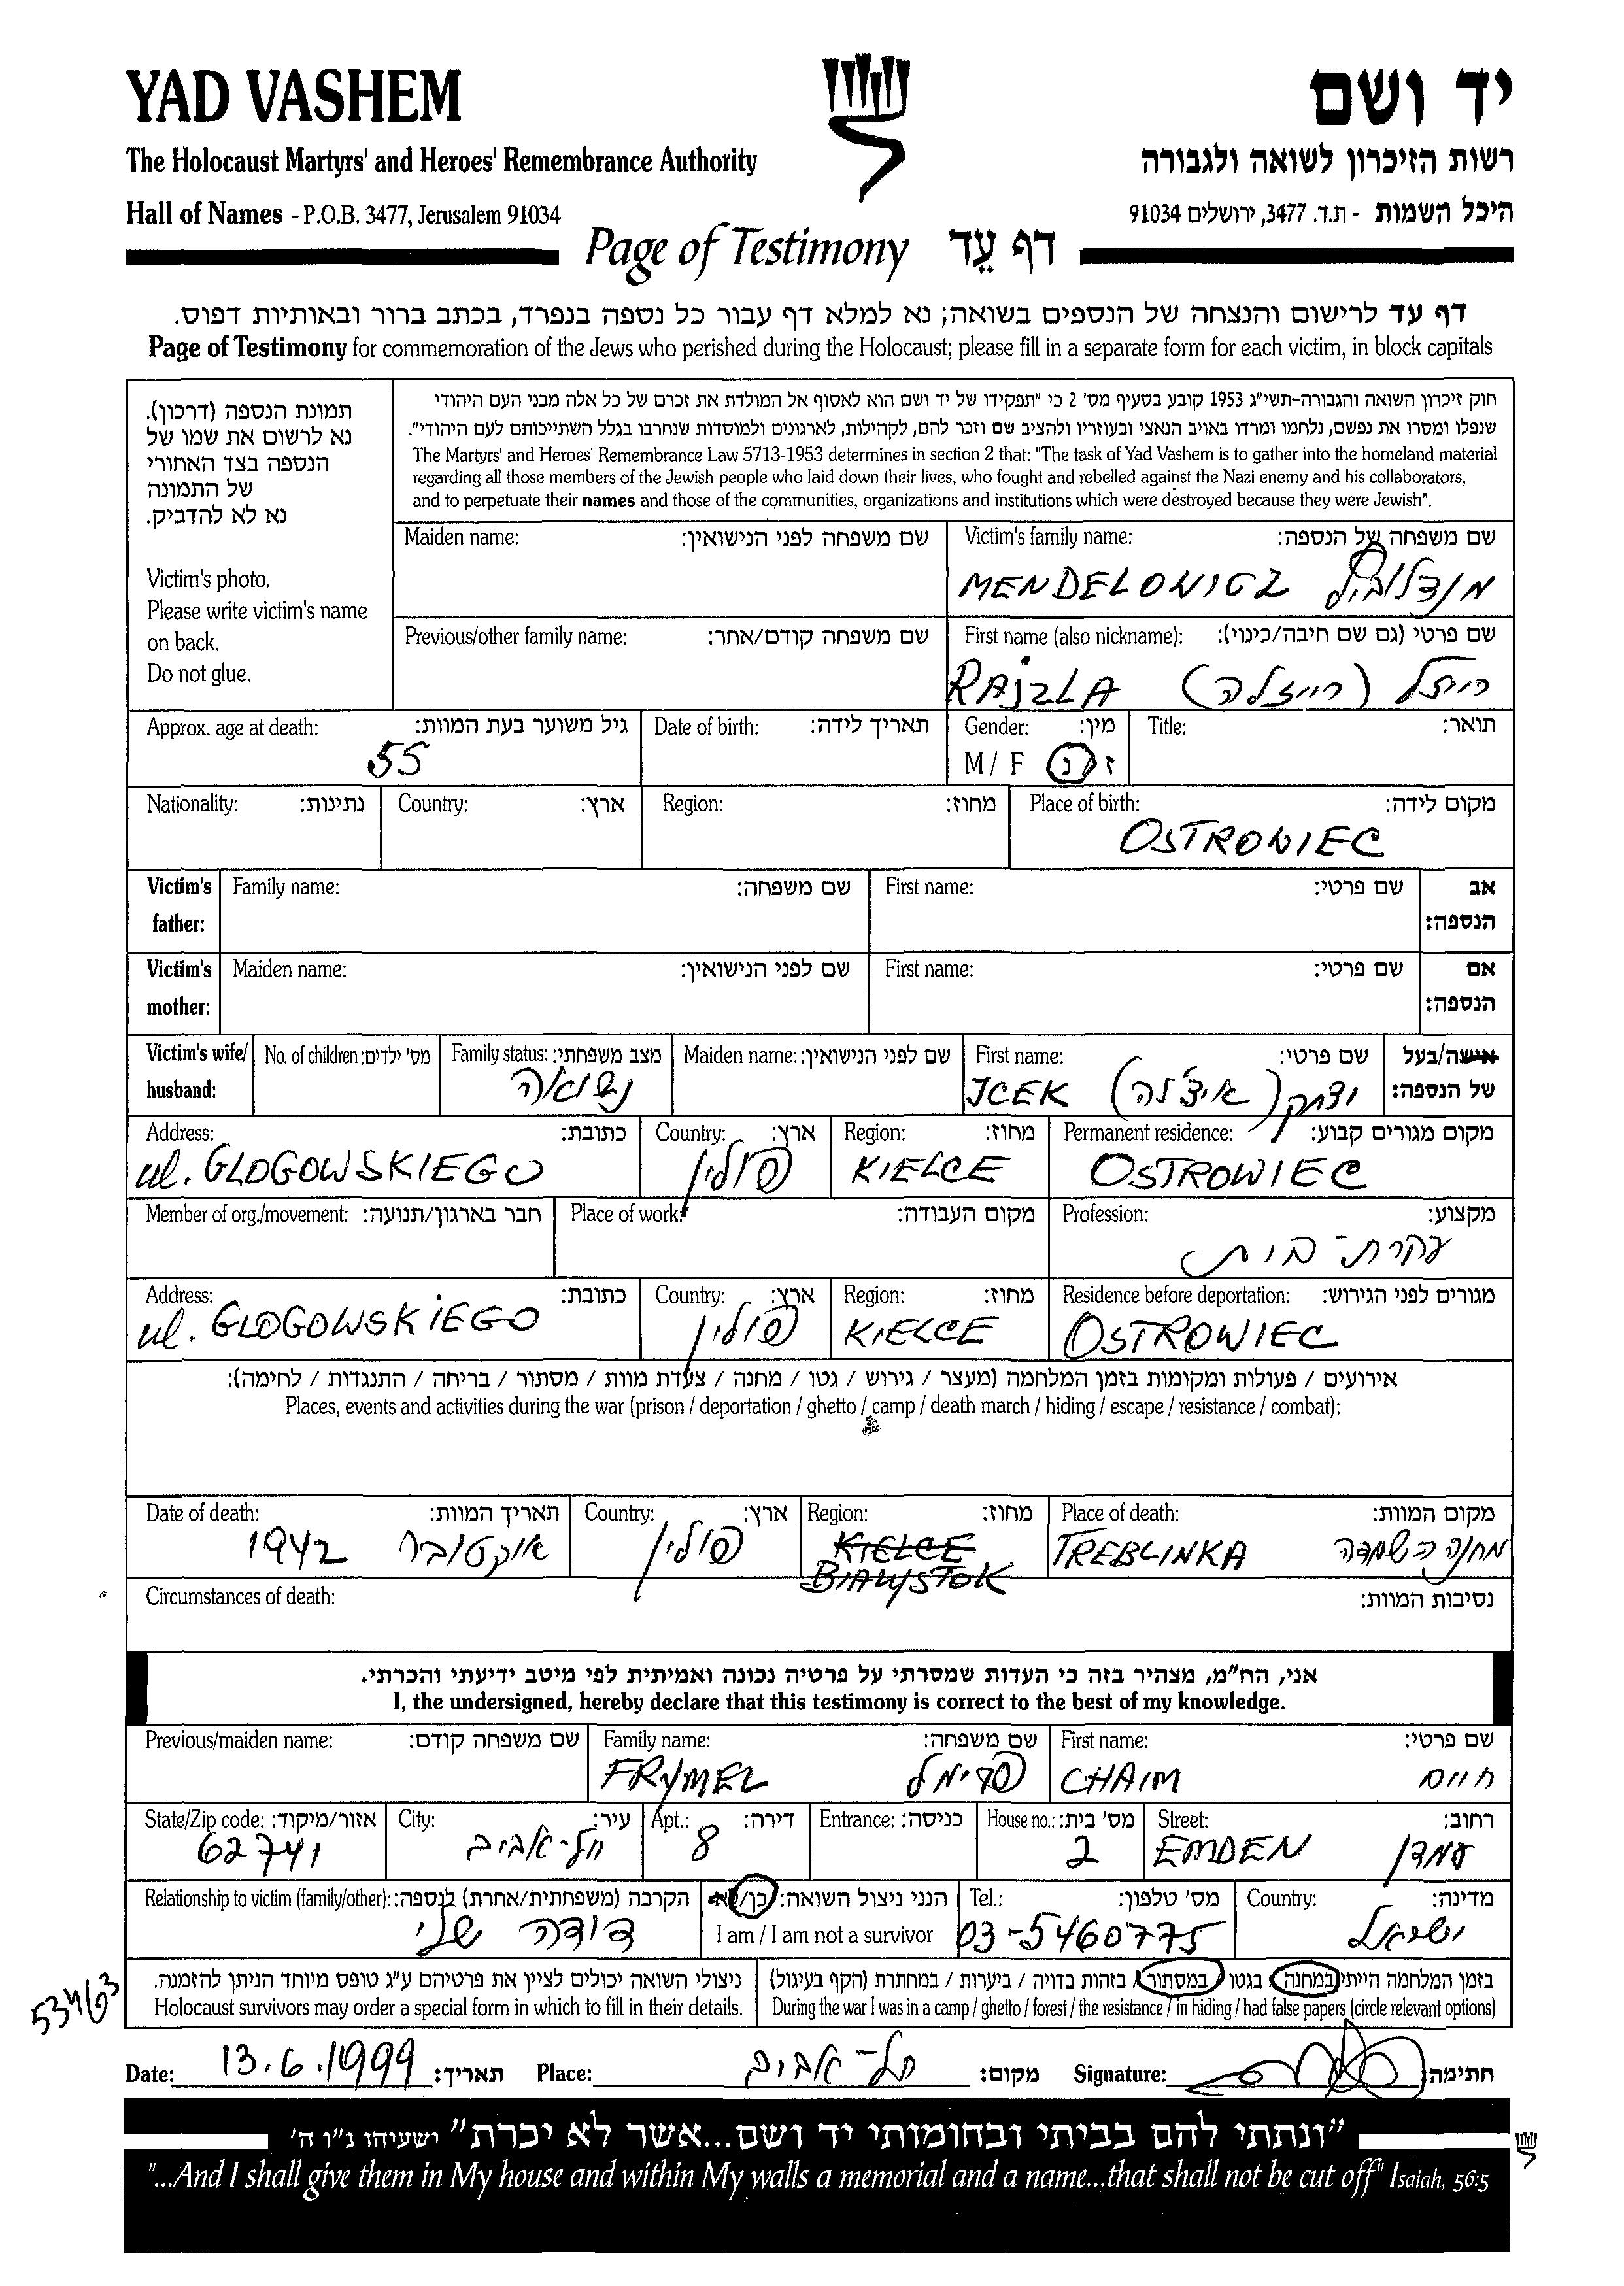 YAD VASHEM
יד ושם
The Holocaust Martyrs' and Heroes' Remembrance Authority
רשות הזיכרון לשואה ולגבורה
Hall of Names - P.O.B. 3477, Jerusalem 91034
היכל השמות - ת.ד. 3477, ירושלים 91034
Page of Testimony דף עֵד
דף עד לרישום והנצחה של הנספים בשואה; נא למלא דף עבור כל נספה בנפרד, בכתב ברור ובאותיות דפוס.
Page of Testimony for commemoration of the Jews who perished during the Holocaust; please fill in a separate form for each victim, in block capitals
תמונת הנספה (דרכון).
נא לרשום את שמו של
הנספה בצד האחורי
של התמונה
נא לא להדביק.
Victim's photo.
Please write victim's name
on back.
Do not glue.
חוק זיכרון השואה והגבורה-תשי"ג 1953 קובע בסעיף מס' 2 כי "תפקידו של יד ושם הוא לאסוף אל המולדת את זכרם של כל אלה מבני העם היהודי
שנפלו ומסרו את נפשם, נלחמו ומרדו באויב הנאצי ובעוזריו ולהציב שם וזכר להם, לקהילות, לארגונים ולמוסדות שנחרבו בגלל השתייכותם לעם היהודי".
The Martyrs' and Heroes' Remembrance Law 5713-1953 determines in section 2 that: "The task of Yad Vashem is to gather into the homeland material
regarding all those members of the Jewish people who laid down their lives, who fought and rebelled against the Nazi enemy and his collaborators,
and to perpetuate their names and those of the communities, organizations and institutions which were destroyed because they were Jewish".
Maiden name: שם משפחה לפני הנישואין:
Victim's family name: שם משפחה של הנספה:
MENDELOWICZ מנדלוביץ
Previous/other family name: שם משפחה קודם/אחר:
First name (also nickname): שם פרטי (גם שם חיבה/כינוי):
RAJZLA (רייזלה)
Approx. age at death: גיל משוער בעת המוות:
55
Date of birth: תאריך לידה:
Gender: מין:
M / F ז / נ
Title: תואר:
Nationality: נתינות:
Country: ארץ:
Region: מחוז:
Place of birth: מקום לידה:
OSTROWIEC
Victim's father: Family name: שם משפחה: First name: שם פרטי: אב הנספה:
Victim's mother: Maiden name: שם לפני הנישואין: First name: שם פרטי: אם הנספה:
Victim's wife/ husband:
No. of children: מס' ילדים:
Family status: מצב משפחתי:
נשואה
Maiden name: שם לפני הנישואין:
First name: שם פרטי:
ICEK יצחק (איצ'לה)
אישה/בעל של הנספה:
Address: כתובת:
ul. GLOGOWSKIEGO
Country: ארץ:
פולין
Region: מחוז:
KIELCE
Permanent residence: מקום מגורים קבוע:
OSTROWIEC
Member of org./movement: חבר בארגון/תנועה:
Place of work: מקום העבודה:
Profession: מקצוע:
עקרת-בית
Address: כתובת:
ul. GLOGOWSKIEGO
Country: ארץ:
פולין
Region: מחוז:
KIELCE
Residence before deportation: מגורים לפני הגירוש:
OSTROWIEC
אירועים / פעולות ומקומות בזמן המלחמה (מעצר / גירוש / גטו / מחנה / צעדת מוות / מסתור / בריחה / התנגדות / לחימה):
Places, events and activities during the war (prison / deportation / ghetto / camp / death march / hiding / escape / resistance / combat):
Date of death: תאריך המוות:
אוקטובר 1942
Country: ארץ:
פולין
Region: מחוז:
KIELCE
BIALYSTOK
Place of death: מקום המוות:
TREBLINKA מחנה השמדה
Circumstances of death: נסיבות המוות:
אני, הח"מ, מצהיר בזה כי העדות שמסרתי על פרטיה נכונה ואמיתית לפי מיטב ידיעתי והכרתי.
I, the undersigned, hereby declare that this testimony is correct to the best of my knowledge.
Previous/maiden name: שם משפחה קודם:
Family name: שם משפחה:
FRYMEL פרימל
First name: שם פרטי:
CHAIM חיים
State/Zip code: אזור/מיקוד:
62741
City: עיר:
תל-אביב
Apt.: דירה:
8
Entrance: כניסה:
House no.: מס' בית:
2
Street: רחוב:
EMDEN עמדן
Relationship to victim (family/other): הקרבה (משפחתית/אחרת) לנספה:
דודה שלי
הנני ניצול השואה: כן/לא
I am / I am not a survivor
Tel.: מס' טלפון:
03-5460775
Country: מדינה:
ישראל
ניצולי השואה יכולים לציין את פרטיהם ע"ג טופס מיוחד הניתן להזמנה.
Holocaust survivors may order a special form in which to fill in their details.
בזמן המלחמה הייתי במחנה / בגטו / במסתור / בזהות בדויה / ביערות / במחתרת (הקף בעיגול)
During the war I was in a camp / ghetto / forest / the resistance / in hiding / had false papers (circle relevant options)
534/63
Date: 13.6.1999 תאריך: Place: תל-אביב מקום: Signature: חתימה:
"ונתתי להם בביתי ובחומותי יד ושם...אשר לא יכרת" ישעיהו נ"ו ה'
"...And I shall give them in My house and within My walls a memorial and a name...that shall not be cut off" Isaiah, 56:5